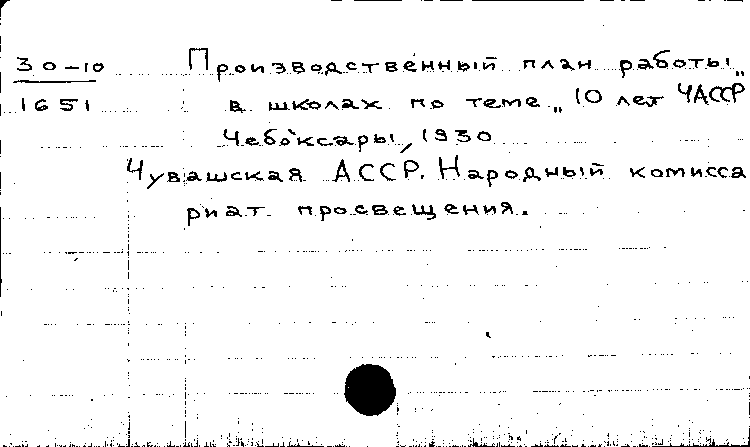 30-10 Производственный план работы
1651 в школах по теме „10 лет ЧАССР"
Чебоксары, 1930
Чувашская АССР. Народный комисса
риат просвещения.